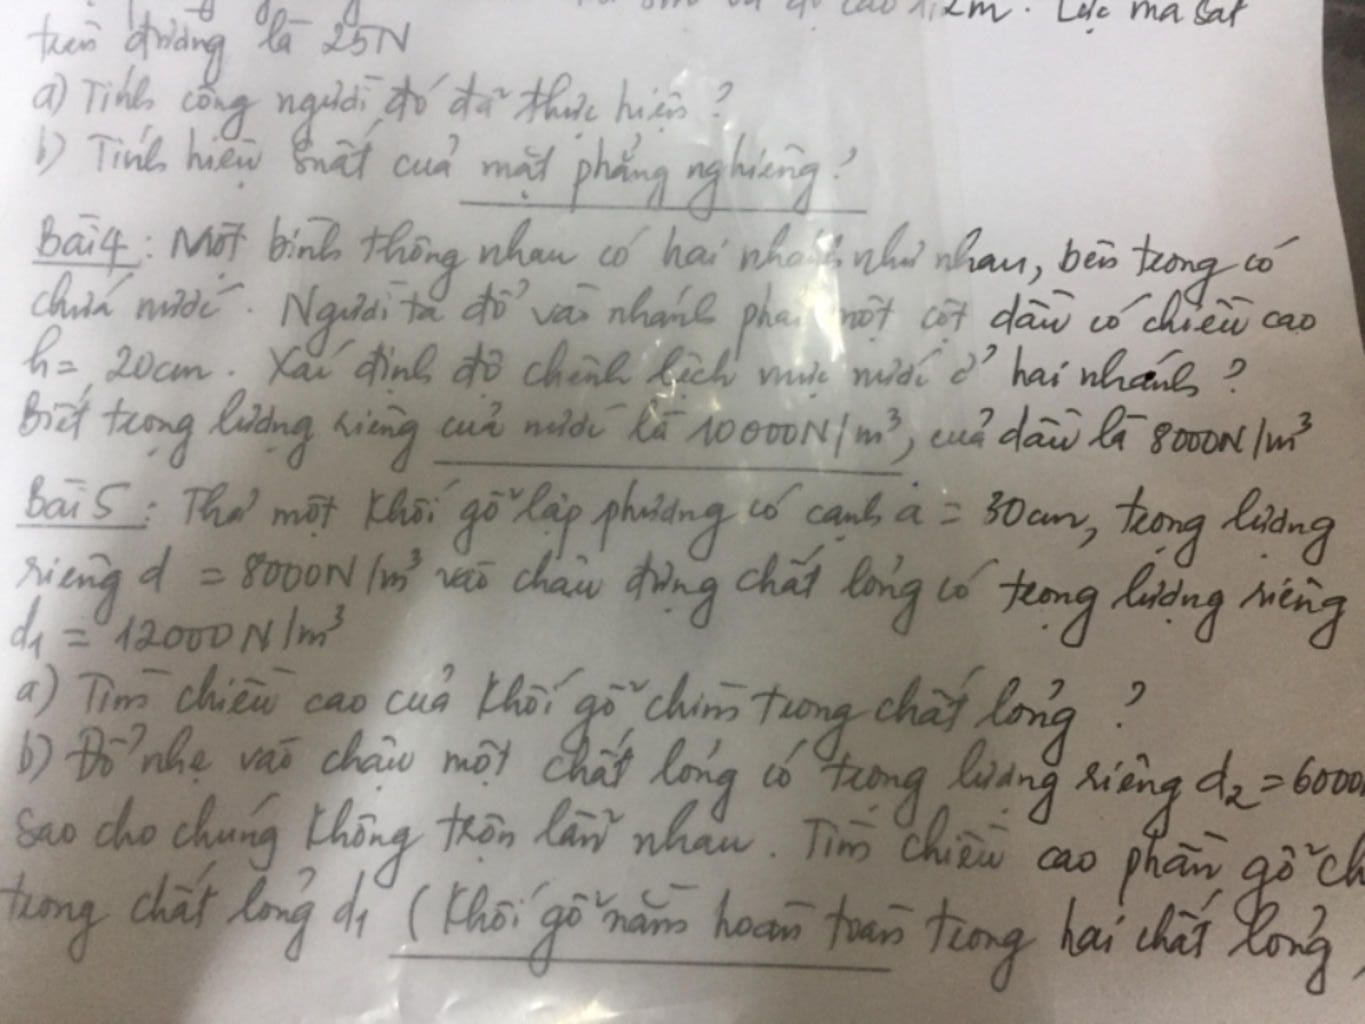 cao 1,2m. Lực ma sát
trên đường là 25N
a) Tính công người đó đã thực hiện?
b) Tính hiệu suất của mặt phẳng nghiêng?
Bài 4: Một bình thông nhau có hai nhánh như nhau, bên trong có
chứa nước. Người ta đổ vào nhánh phải một cột dầu có chiều cao
h = 20cm. Xác định độ chênh lệch mực nước ở hai nhánh?
Biết trọng lượng riêng của nước là 10000N/m³, của dầu là 8000N/m³
Bài 5: Thả một khối gỗ lập phương có cạnh a = 30cm, trọng lượng
riêng d = 8000N/m³ vào chậu đựng chất lỏng có trọng lượng riêng
d₁ = 12000N/m³
a) Tìm chiều cao của khối gỗ chìm trong chất lỏng?
b) Đổ nhẹ vào chậu một chất lỏng có trọng lượng riêng d₂ = 6000
sao cho chúng không trộn lẫn nhau. Tìm chiều cao phần gỗ ch
trong chất lỏng d₁ (khối gỗ nằm hoàn toàn trong hai chất lỏng